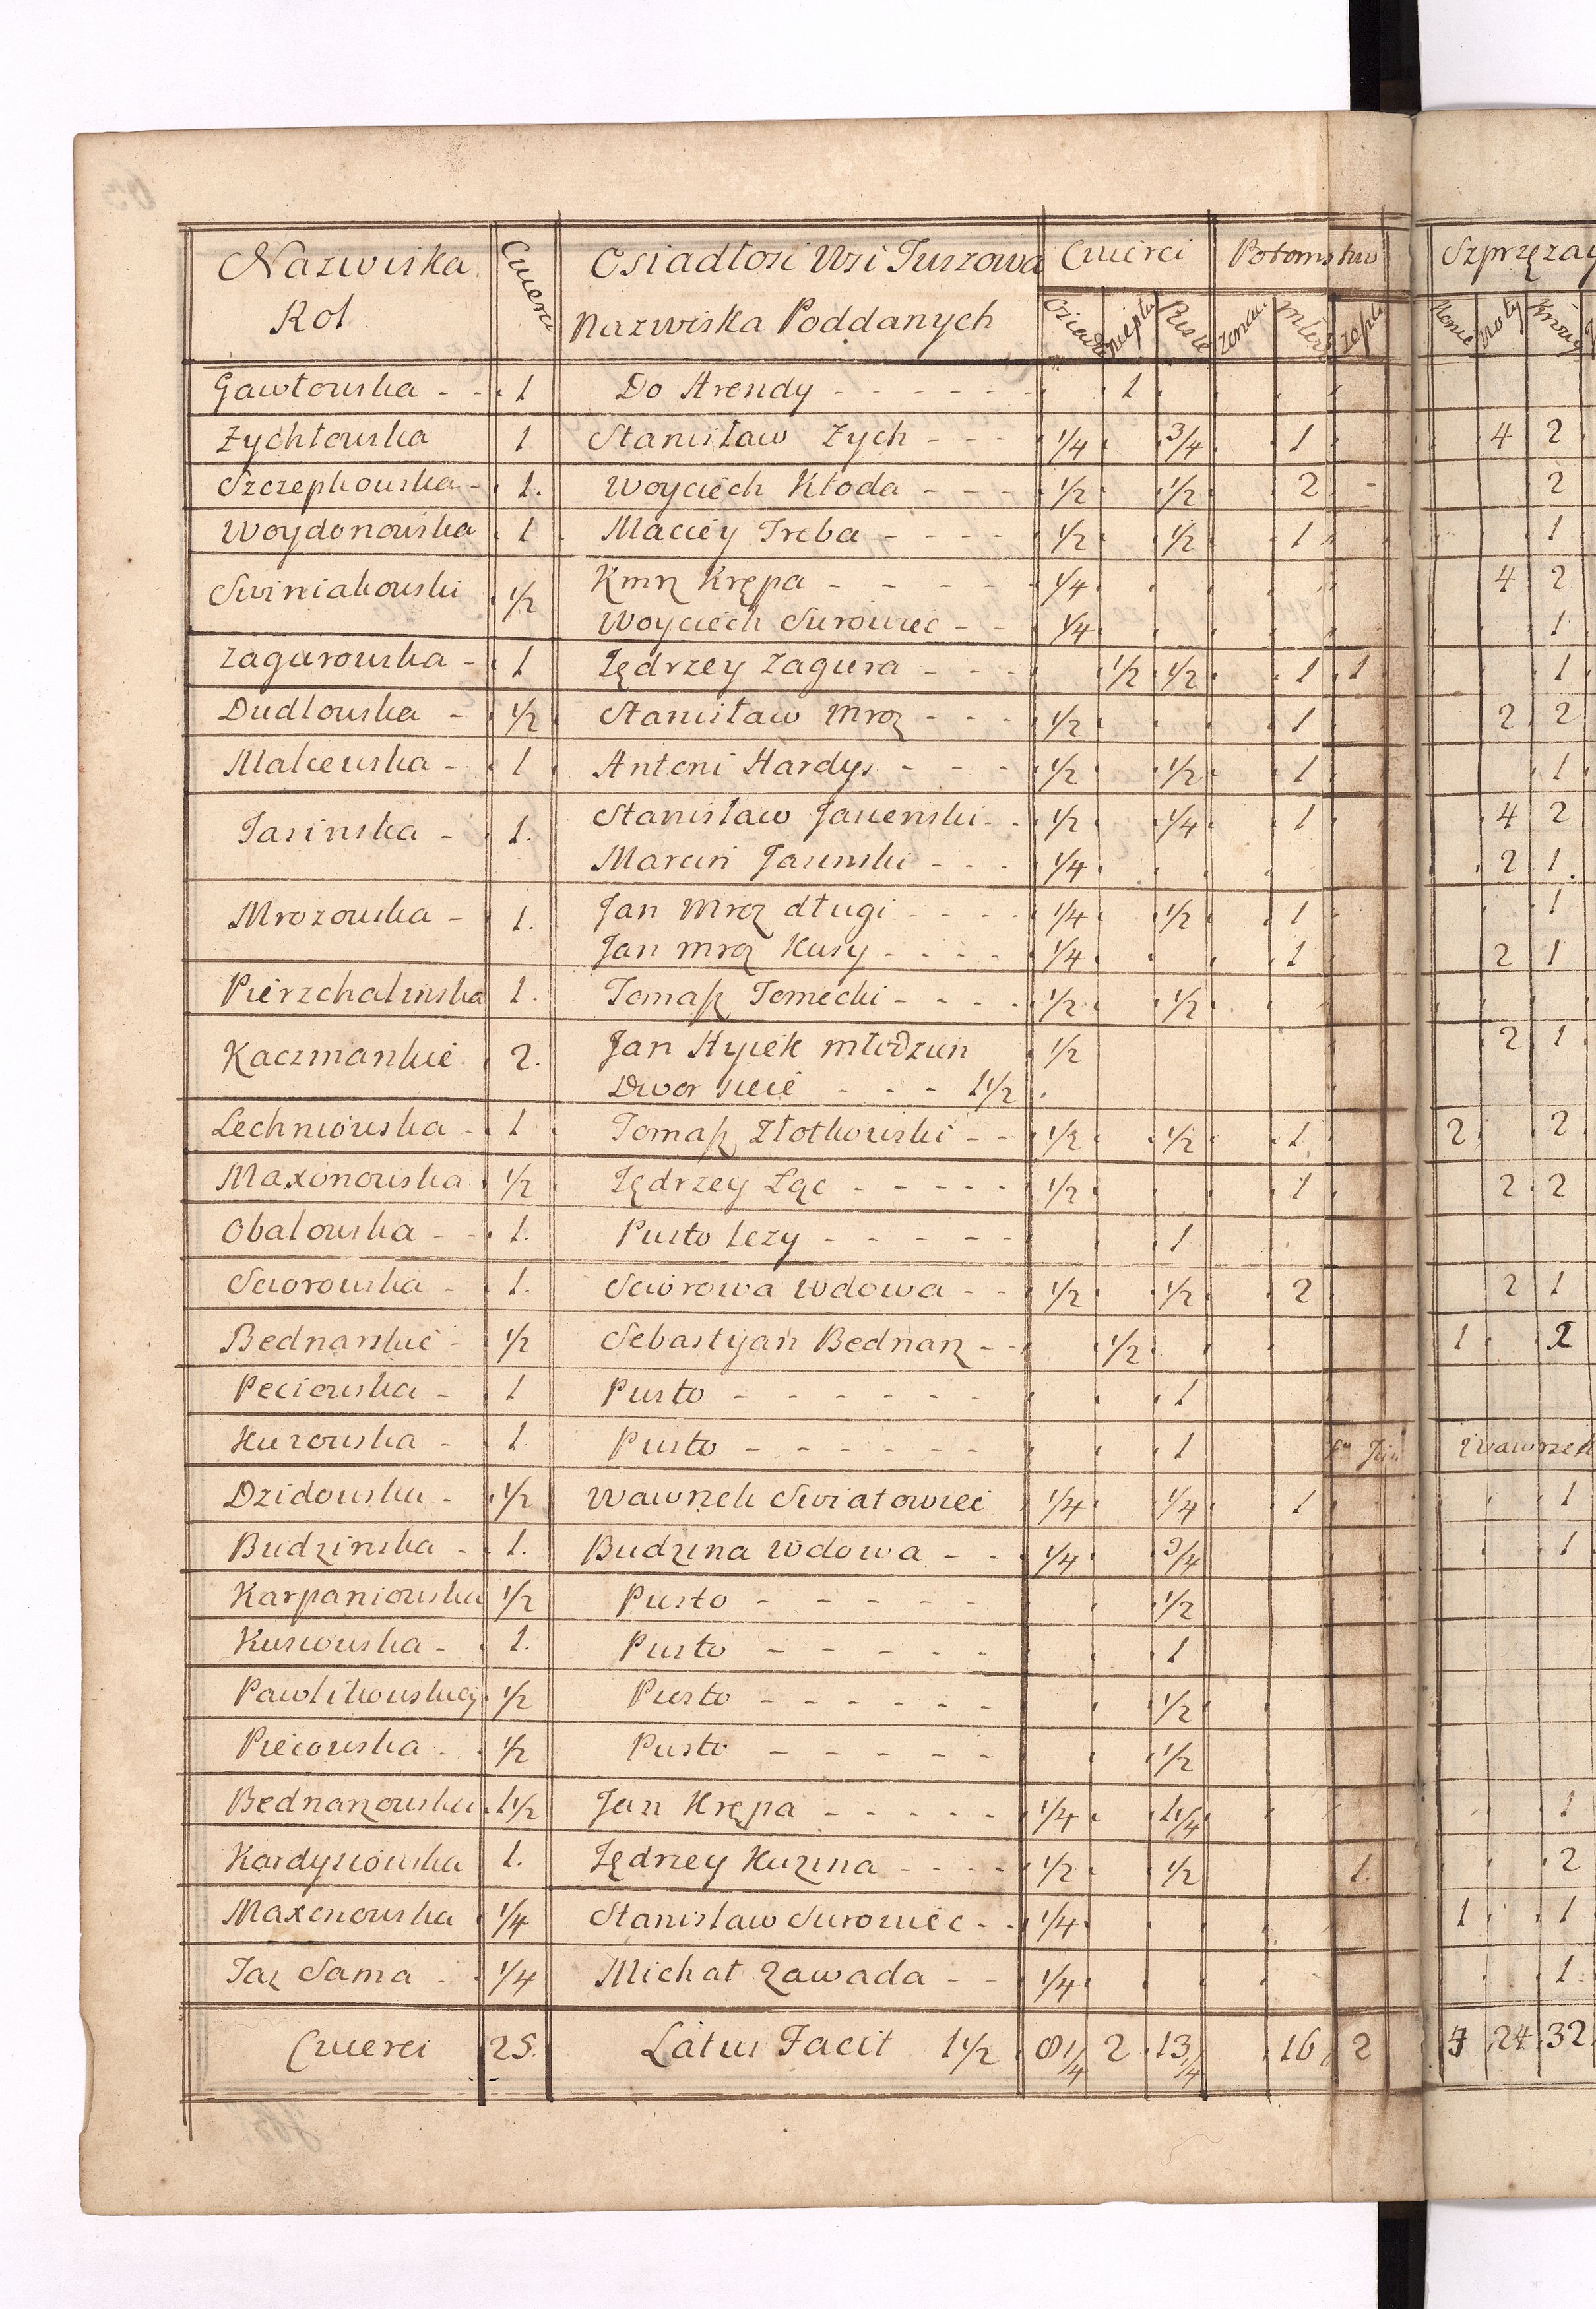 Nazwiska Rol | Cwierci | Osiadłosi Wsi Tuszowa Nazwiska Poddanych | Cwierci | Potomstwo | Szprzęzay
Osiadł | Puste | Konie | Woły | Krowy
Gawłowska - - 1 Do Arendy - - - - - - 1
Zychtowska 1 Stanisław Zych - - - 1/4 3/4 1 4 2
Szczepkowska - 1. Woyciech Kłoda - - - 1/2 1/2 2 - 2
Woydonowska 1 Maciey Treba - - - - 1/2 1/2 1 1
Swiniakowski 1/2 Kmz Krępa - - - - - 1/4 4 2
Woyciech Surowiec - - 1/4 1
Zagurowska - 1 Jędrzey Zagura - - - 1/2 1/2 1 1 1
Dudlowska - 1/2 Stanisław Mroz - - - 1/2 1 2 2
Malcewska - 1 Antoni Hardys - - - 1/2 1/2 1 1
Jasinska - 1. Stanisław Jasienski - - 1/2 1/4 1 4 2
Marcin Jasinski - - - 1/4 2 1
Mrozowska - 1. Jan Mroz długi - - - - 1/4 1/2 1 1
Jan mroz Kusy - - - - 1/4 1 2 1
Pierzchalinska 1. Tomasz Tomecki - - - - 1/2 1/2
Kaczmarskie 2. Jan Hycek młodzun 1/2 2 1
Dwor sieie - - - 1 1/2
Lechniowska - 1 Tomasz Złotkowski - - 1/2 1/2 1 2 2
Maxonowska 1/2 Jędrzey Łąc - - - - - 1/2 1 2 2
Obalowska - - 1. Pusto lezy - - - - - 1
Sciorowska - 1. Sciorowa wdowa - - 1/2 1/2 2 2 1
Bednarskie - 1/2 Sebastyan Bednarz - - 1/2 1 2
Peciowska - 1 Pusto - - - - - - 1
Kurowska - 1. Pusto - - - - - - 1 Wawrzek
Dzidowska - 1/2 Wawrzek Swiatowiec 1/4 1/4 1 1
Budzinska - 1. Budzina wdowa - - 1/4 3/4 1
Karpaniowska 1/2 Pusto - - - - - 1/2
Kusiowska - 1. Pusto - - - - - 1
Pawlikowskiey 1/2 Pusto - - - - - - 1/2
Piecowska - 1/2 Pusto - - - - - 1/2
Bednarzowska 1 1/2 Jan Krępa - - - - - 1/4 1 1/4 1
Kardysiowska 1. Jędrzey Kuzina - - - - 1/2 1/2 1. 2
Maxonowska 1/4 Stanisław Surowiec - - 1/4 1 1
Taz Sama - 1/4 Michał Zawada - - 1/4 1
Cwierci 25. Latus Facit 1 1/2 8 1/4 2 13 1/4 16 2 4 24 32